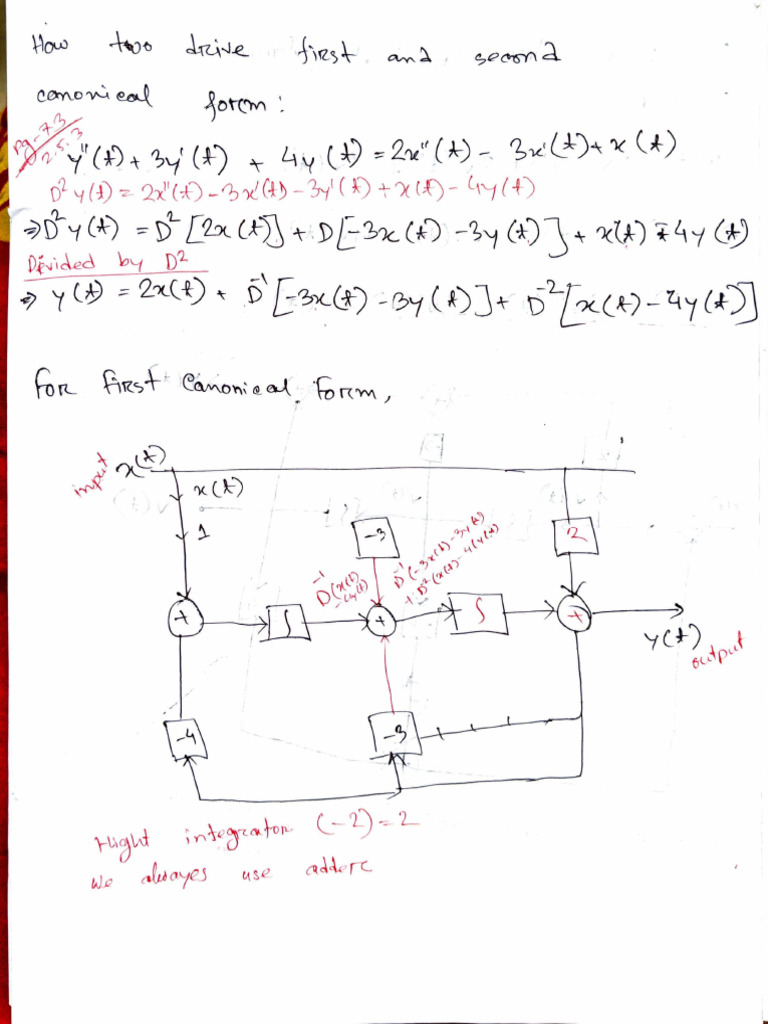 How two drive first and second
canonical form:
Pg-73
2.5.3
y''(t) + 3y'(t) + 4y(t) = 2x''(t) - 3x'(t) + x(t)
D²y(t) = 2x''(t) - 3x'(t) - 3y'(t) + x(t) - 4y(t)
⇒ D²y(t) = D²[2x(t)] + D[-3x(t) - 3y(t)] + x(t) - 4y(t)
Divided by D²
⇒ y(t) = 2x(t) + D⁻¹[-3x(t) - 3y(t)] + D⁻²[x(t) - 4y(t)]
For first Canonical Form,
input x(t)
x(t)
1
-3
2
D⁻¹(x(t)
-4y(t))
D⁻¹(-3x(t) - 3y(t)
+ D⁻²(x(t) - 4y(t)
+ ∫ + ∫ +
y(t)
output
-4
-3
Hight integrator (-2) = 2
We alwayes use adder